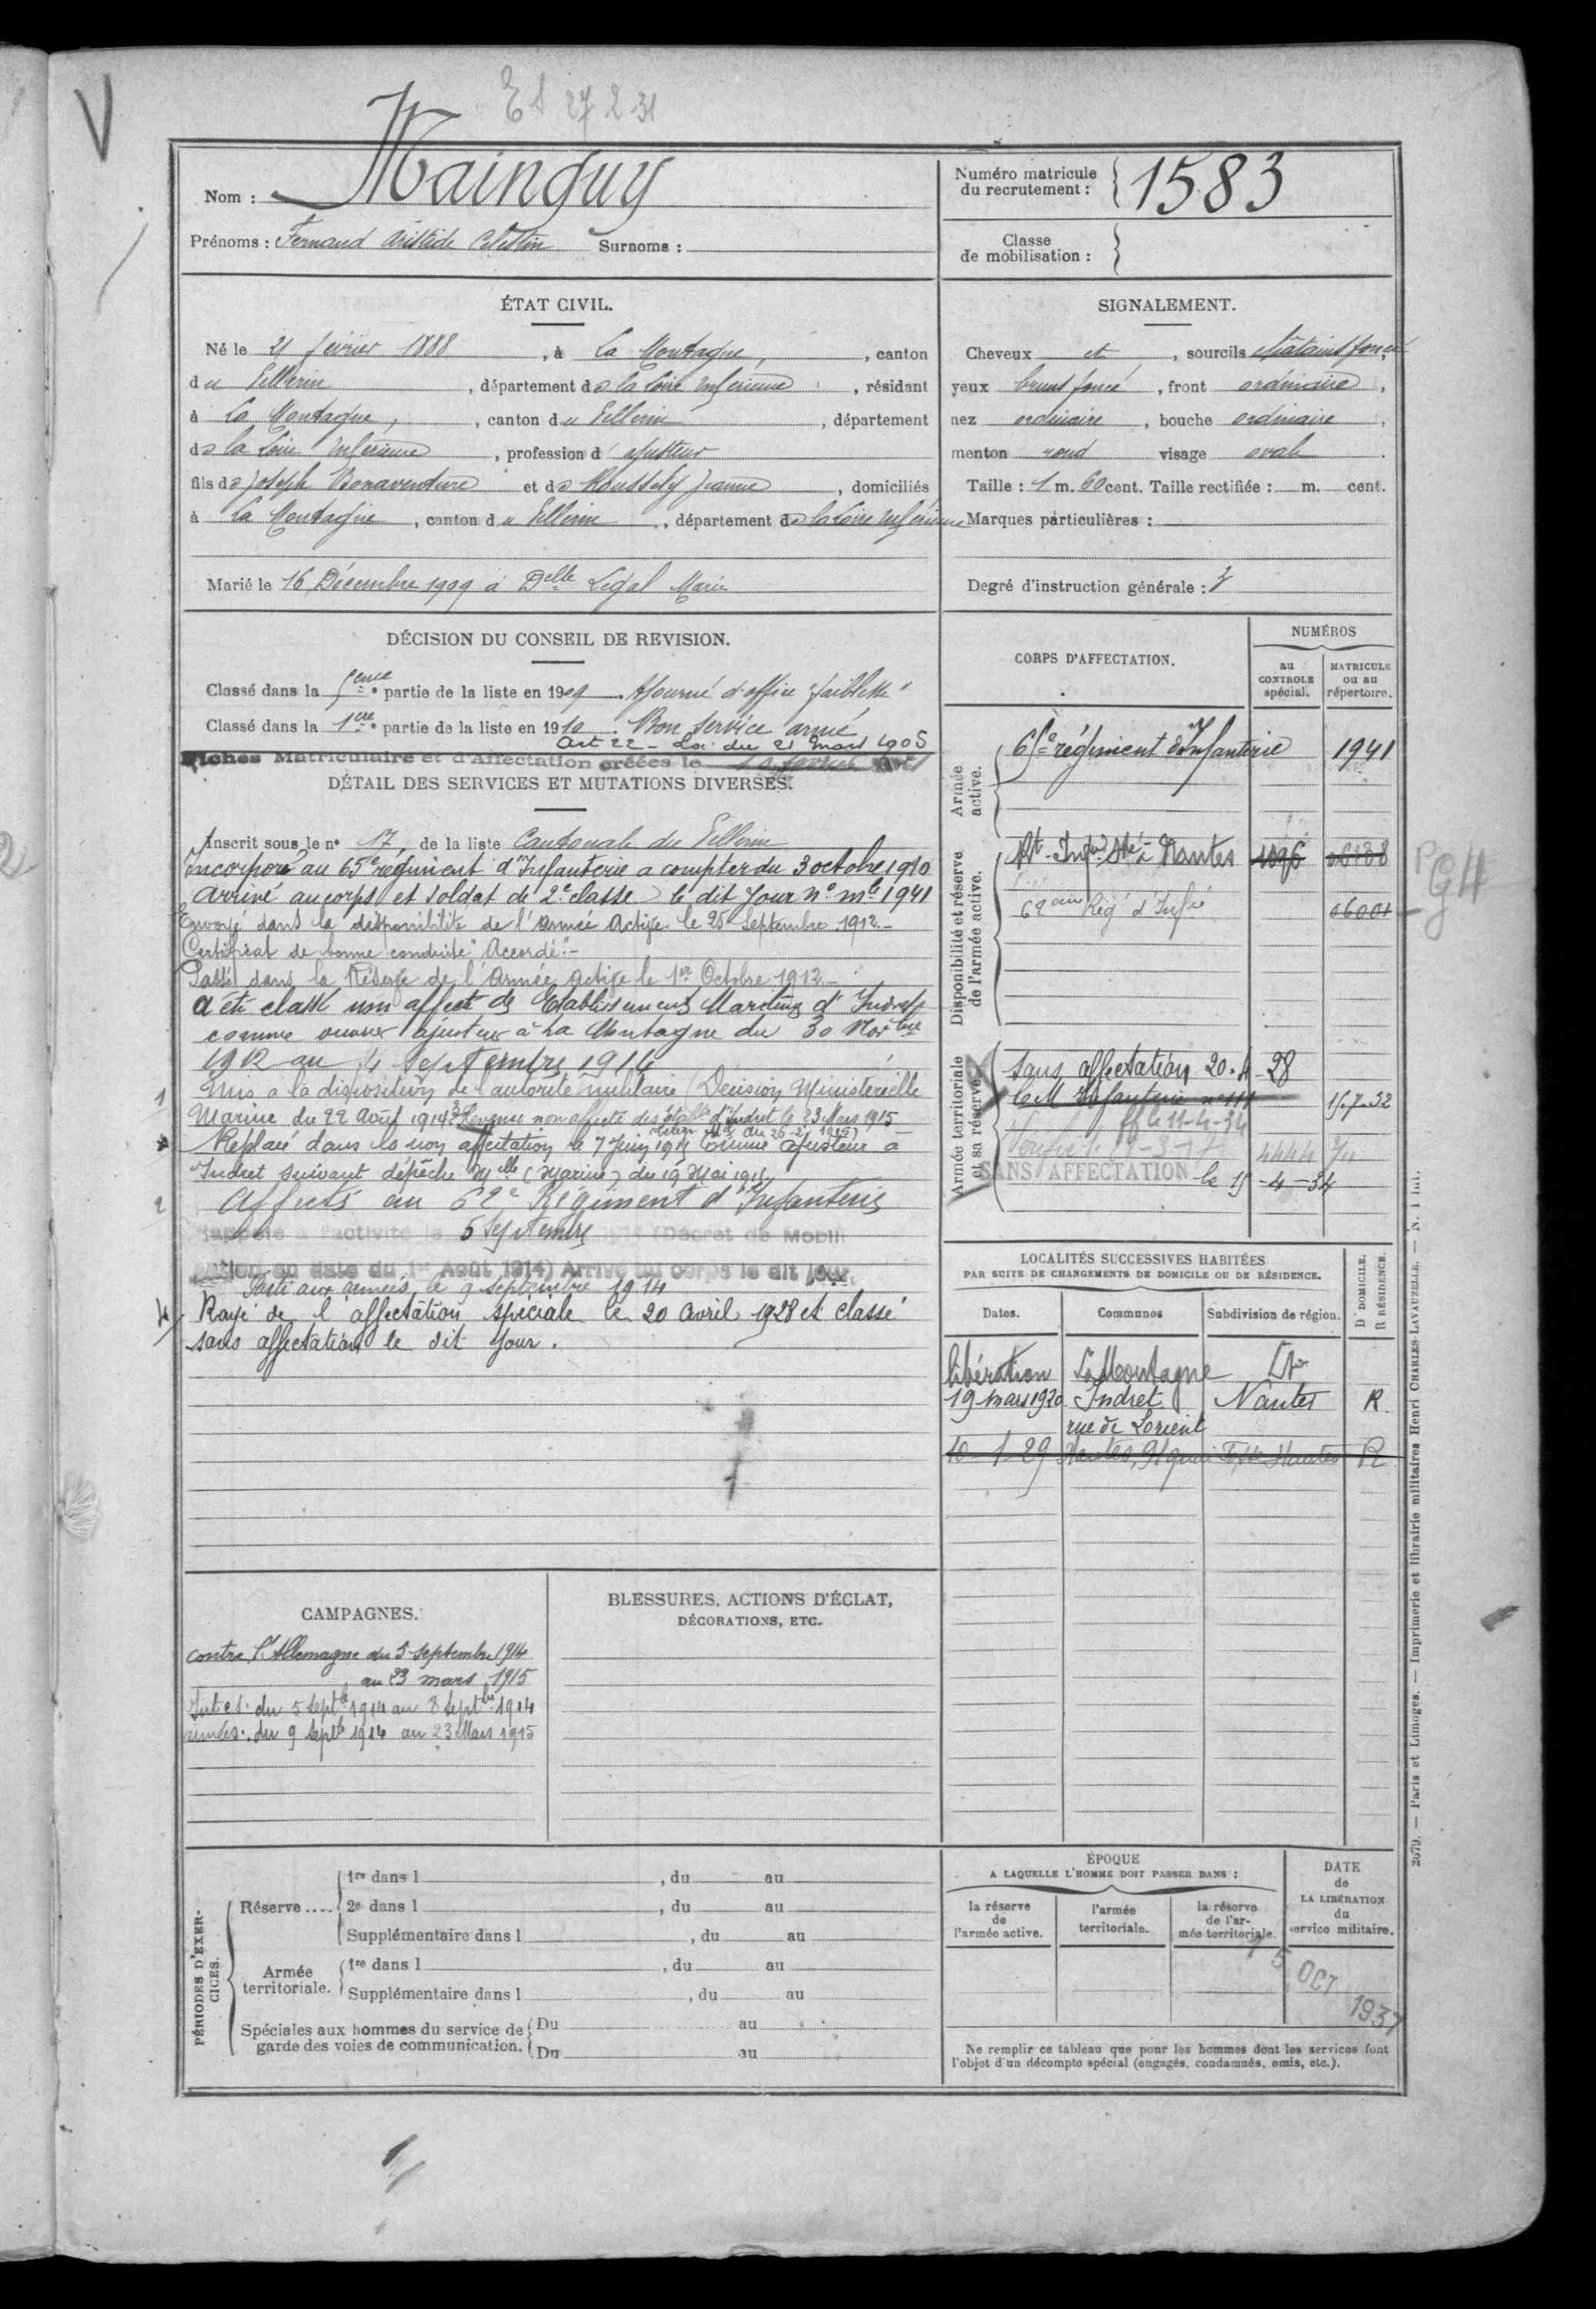 V
27 2 31
Nom : Mainguy
Prénoms : Fernand Aristide Célestin Surnoms :
Numéro matricule du recrutement : 1583
Classe de mobilisation :
ÉTAT CIVIL.
Né le 21 février 1888, à La Montagne, canton
du Pellerin, département de la Loire Inférieure, résidant
à La Montagne, canton du Pellerin, département
de la Loire Inférieure, profession d'ajusteur
fils de Joseph Bonaventure et de Roussely Jeanne, domiciliés
à La Montagne, canton du Pellerin, département de la Loire Inférieure
Marié le 16 Décembre 1909 à Delle Legal Marie
SIGNALEMENT.
Cheveux et, sourcils châtains foncé
yeux bruns foncé, front ordinaire,
nez ordinaire, bouche ordinaire,
menton rond visage ovale.
Taille : 1 m. 60 cent. Taille rectifiée : m. cent.
Marques particulières :
Degré d'instruction générale : 3
DÉCISION DU CONSEIL DE REVISION.
Classé dans la 5eme partie de la liste en 1909. Ajourné d'office "faiblesse"
Classé dans la 1ere partie de la liste en 1910. Bon service armé
Art 22 - Loi du 21 mars 1905
Fiches Matriculaire et d'Affectation créées le
DÉTAIL DES SERVICES ET MUTATIONS DIVERSES.
Inscrit sous le n° 17, de la liste Cantonale du Pellerin
Incorporé au 65e régiment d'Infanterie a compter du 3 octobre 1910
Arrivé au corps et soldat de 2e classe le dit jour n° mle 1941
Envoyé dans la disponibilité de l'Armée Active le 25 Septembre 1912.-
Certificat de bonne conduite "Accordé".-
Passé dans la Réserve de l'Armée active le 1er Octobre 1912.-
A été classé non affecté des Etablissements Maritimes d'Indret
comme ouvrier ajusteur à La Montagne du 30 Novbre
1912 au 4 Septembre 1914
1 Mis a la disposition de l'autorité militaire (Décision Ministérielle
Marine du 22 Août 1914. 3 Revenu non affecté des Etablts d'Indret le 23 Mars 1915
Replacé dans la non affectation le 7 Juin 1915 comme ajusteur à
Indret suivant dépêche Mlle (Marine) du 19 Mai 1915
2 Affecté au 62e Régiment d'Infanterie
Rappelé à l'activité le 5 Septembre 1914 (Décret de Mobili
sation en date du 1er Août 1914) Arrivé au corps le dit jour.
Parti aux armées le 9 Septembre 1914
4 Rayé de l'affectation spéciale le 20 avril 1928 et classé
sans affectation le dit jour.
CORPS D'AFFECTATION.
NUMÉROS
au CONTROLE spécial.
MATRICULE ou au répertoire.
Armée active.
65e régiment d'Infanterie 1941
Disponibilité et réserve de l'armée active.
Nantes 1096 06138
62eme Rég d'Infie 06001
G4
Armée territoriale et sa réserve.
Sans affectation 20-4-28
C M Infanterie n° 111 15.7.32
11-4-34
4444
SANS AFFECTATION le 15-4-34
LOCALITÉS SUCCESSIVES HABITÉES
PAR SUITE DE CHANGEMENTS DE DOMICILE OU DE RÉSIDENCE.
Dates. Communes Subdivision de région. D DOMICILE. R RÉSIDENCE.
libération La Montagne
19 mars 1920 Indret Nantes R.
rue de Lorient
10-1-29 Nantes, 91 quai Nantes R
CAMPAGNES.
contre l'Allemagne du 5 Septembre 1914
au 23 mars 1915
Intér. du 5 septbre 1914 au 8 septbre 1914
armées. du 9 septbre 1914 au 23 Mars 1915
BLESSURES, ACTIONS D'ÉCLAT,
DÉCORATIONS, ETC.
PÉRIODES D'EXERCICES.
Réserve....
1re dans l , du au
2e dans l , du au
Supplémentaire dans l , du au
Armée territoriale.
1re dans l , du au
Supplémentaire dans l , du au
Spéciales aux hommes du service de garde des voies de communication.
Du au
Du au
ÉPOQUE
A LAQUELLE L'HOMME DOIT PASSER DANS :
la réserve de l'armée active.
l'armée territoriale.
la réserve de l'armée territoriale.
DATE de LA LIBÉRATION du service militaire.
15 OCT 1937
Ne remplir ce tableau que pour les hommes dont les services font
l'objet d'un décompte spécial (engagés, condamnés, omis, etc.).
2079. — Paris et Limoges. — Imprimerie et librairie militaires Henri CHARLES-LAVAUZELLE. — N. 1 bis.